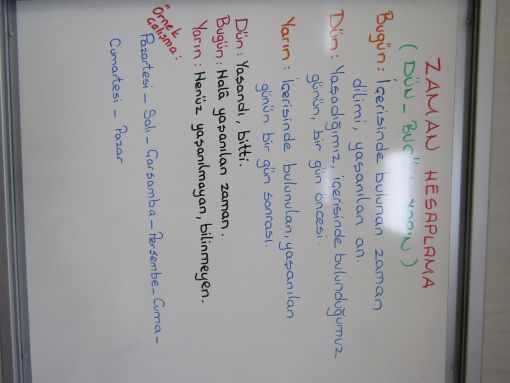 ZAMAN HESAPLAMA
( DÜN - BUGÜN - YARIN )
Bugün : İçerisinde bulunan zaman
dilimi, yaşanılan an.
Dün : Yaşadığımız, içerisinde bulunduğumuz
günün, bir gün öncesi.
Yarın : İçerisinde bulunulan, yaşanılan
günün bir gün sonrası.
Dün : Yaşandı, bitti.
Bugün : Halâ yaşanılan zaman.
Yarın : Henüz yaşanılmayan, bilinmeyen.
Örnek
Çalışma :
Pazartesi - Salı - Çarşamba - Perşembe - Cuma -
Cumartesi - Pazar